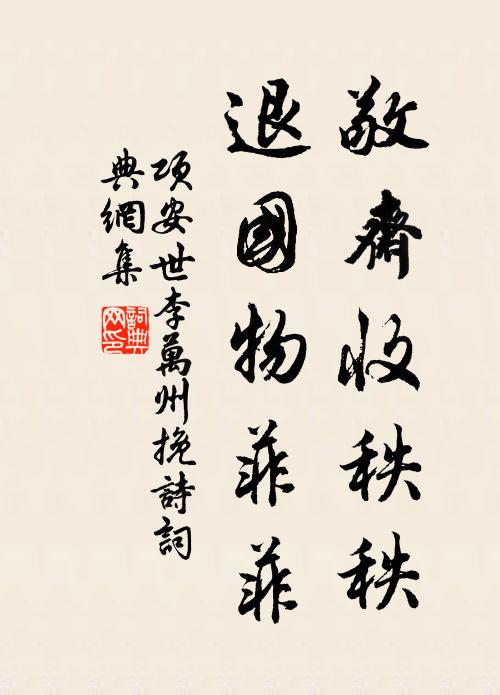 敬齋收秩秩
退國物菲菲
項安世李萬州挽詩詞
典網集
詞典
网印